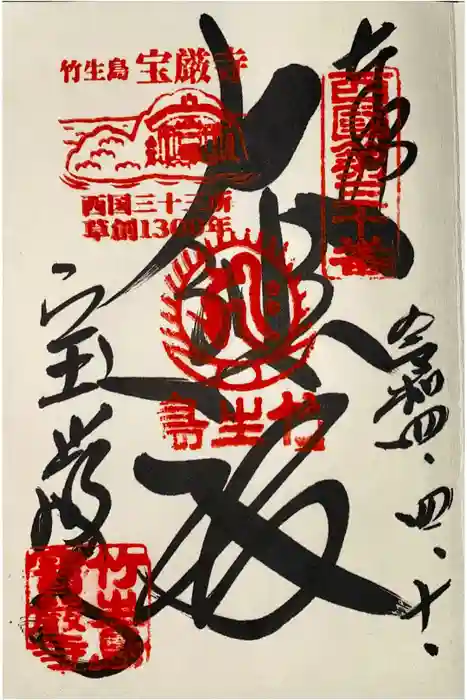 奉拝
西國第三十番
令和四.四.十.
大悲殿
竹生島 宝厳寺
西国三十三所
草創1300年
竹生島
宝厳寺
竹生島寶厳寺